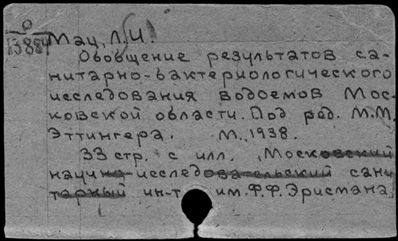 О
13884
Мац, Л.И.
Обобщение результатов са-
нитарно-бактериологического
исследования водоемов Мос-
ковской области. Под ред. М.М.
Эттингера. М., 1938.
33 стр. с илл. (Московский
научно-исследовательский сани
тарный ин-т им. Ф.Ф. Эрисмана)